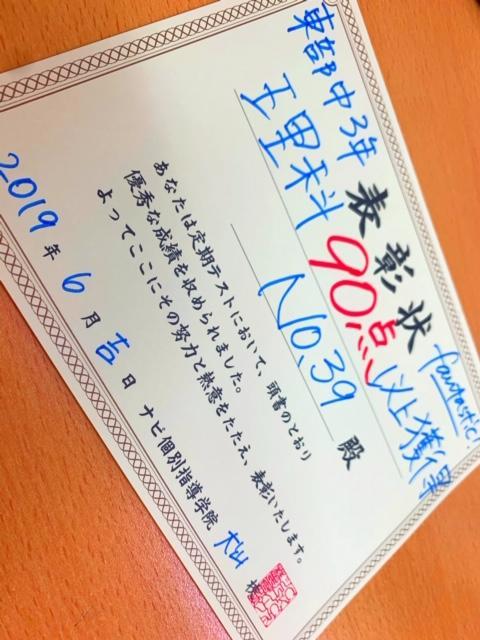 表彰状
fantastic!
東部中3年
理科 90点以上獲得
No.39 殿
あなたは定期テストにおいて、頭書のとおり
優秀な成績を収められました。
よってここにその努力と熱意をたたえ、表彰いたします。
2019年6月吉日 ナビ個別指導学院 大山